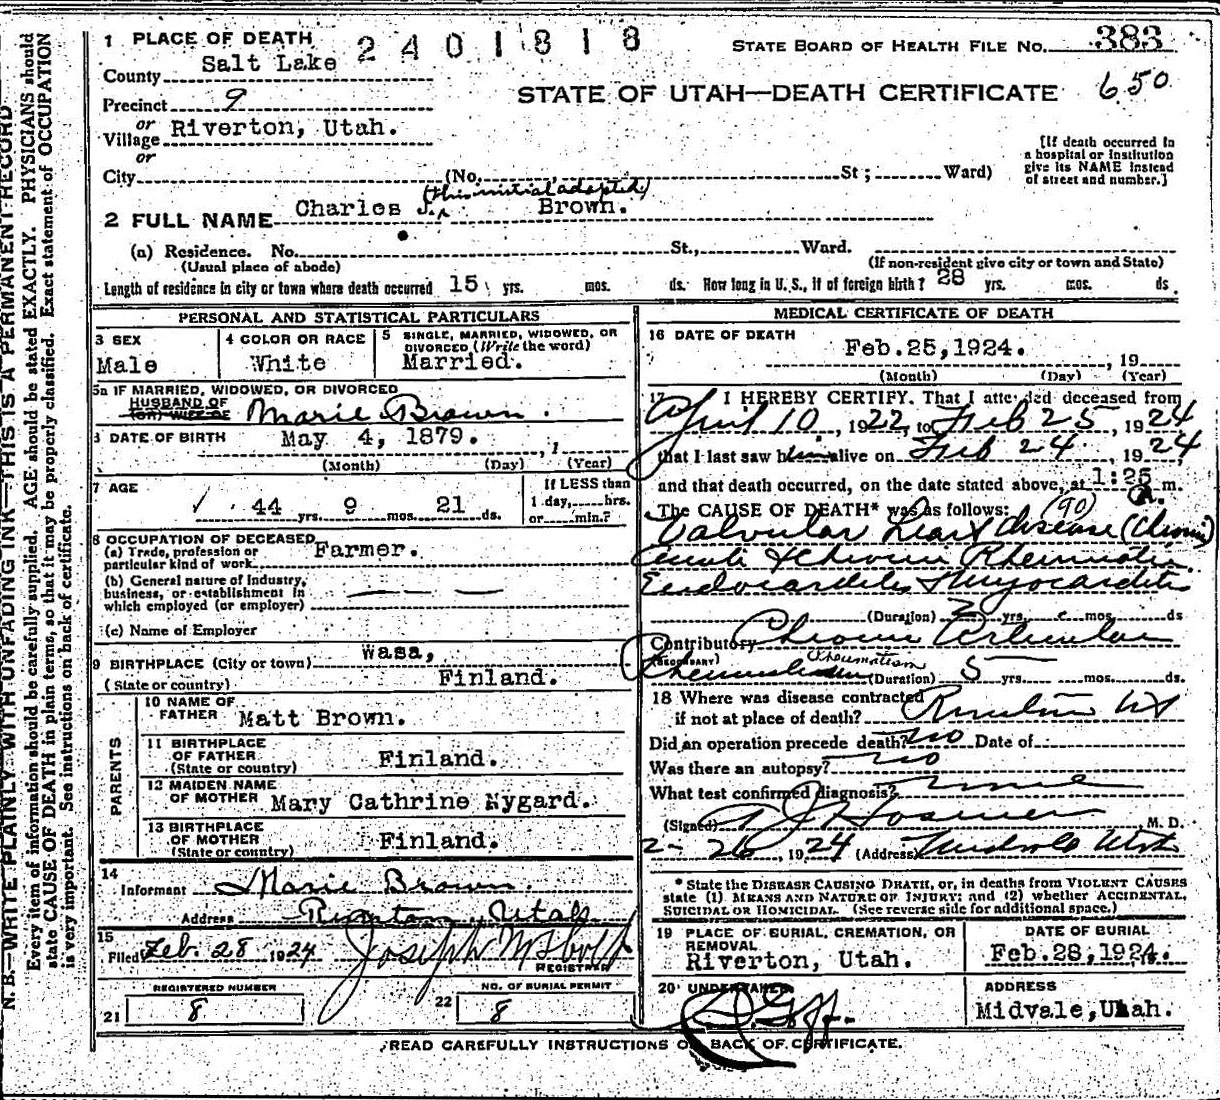 1 PLACE OF DEATH 2401818 STATE BOARD OF HEALTH FILE NO. 383
County Salt Lake
Precinct 9 STATE OF UTAH—DEATH CERTIFICATE 650
or
Village Riverton, Utah.
or
City (No. St; Ward)
[If death occurred in
a hospital or institution
give its NAME instead
of street and number.]
(this initial adopted)
2 FULL NAME Charles J. Brown.
(a) Residence. No. St., Ward.
(Usual place of abode) (If non-resident give city or town and State)
Length of residence in city or town where death occurred 15 yrs. mos. ds. How long in U.S., if of foreign birth? 28 yrs. mos. ds.
PERSONAL AND STATISTICAL PARTICULARS
3 SEX
Male
4 COLOR OR RACE
White
5 SINGLE, MARRIED, WIDOWED, OR
DIVORCED (Write the word)
Married.
5a IF MARRIED, WIDOWED, OR DIVORCED
HUSBAND OF
(or) WIFE OF Marie Brown.
6 DATE OF BIRTH May 4, 1879. , 1
(Month) (Day) (Year)
7 AGE
44 yrs. 9 mos. 21 ds.
If LESS than
1 day, hrs.
or min.?
8 OCCUPATION OF DECEASED
(a) Trade, profession or
particular kind of work Farmer.
(b) General nature of industry,
business, or establishment in
which employed (or employer)
(c) Name of Employer
9 BIRTHPLACE (City or town) Wasa,
(State or country) Finland.
PARENTS
10 NAME OF
FATHER Matt Brown.
11 BIRTHPLACE
OF FATHER
(State or country) Finland.
12 MAIDEN NAME
OF MOTHER Mary Cathrine Nygard.
13 BIRTHPLACE
OF MOTHER
(State or country) Finland.
14
Informant Marie Brown.
Address Riverton, Utah
15
Filed Feb. 28 1924 Joseph
REGISTRAR
REGISTERED NUMBER
21 8
NO. OF BURIAL PERMIT
22 8
MEDICAL CERTIFICATE OF DEATH
16 DATE OF DEATH
Feb.25,1924. , 19
(Month) (Day) (Year)
17 I HEREBY CERTIFY, That I attended deceased from
April 10, 1922, to Feb 25, 1924
that I last saw him alive on Feb 24, 1924,
and that death occurred, on the date stated above, at 1:25 A. m.
The CAUSE OF DEATH* was as follows: (90)
Valvular heart disease (Chronic)
Acute & Chronic Rheumatic
Endocarditis & Myocarditis
(Duration) 2 yrs. mos. ds
Contributory Chronic Articular
(SECONDARY) Rheumatism Rheumatism (Duration) 5 yrs. mos. ds.
18 Where was disease contracted
if not at place of death? Riverton Ut
Did an operation precede death? No Date of
Was there an autopsy? no
What test confirmed diagnosis? none
(Signed) M. D.
2-26, 1924 (Address) Midvale Utah
* State the DISEASE CAUSING DEATH, or, in deaths from VIOLENT CAUSES
state (1) MEANS AND NATURE OF INJURY; and (2) whether ACCIDENTAL,
SUICIDAL OR HOMICIDAL. (See reverse side for additional space.)
19 PLACE OF BURIAL, CREMATION, OR
REMOVAL
Riverton, Utah.
DATE OF BURIAL
Feb.28,1924.
20 UNDERTAKER
ADDRESS
Midvale, Utah.
READ CAREFULLY INSTRUCTIONS ON BACK OF CERTIFICATE.
N. B.—WRITE PLAINLY WITH UNFADING INK—THIS IS A PERMANENT RECORD
Every item of information should be carefully supplied. AGE should be stated EXACTLY. PHYSICIANS should
state CAUSE OF DEATH in plain terms, so that it may be properly classified. Exact statement of OCCUPATION
is very important. See instructions on back of certificate.